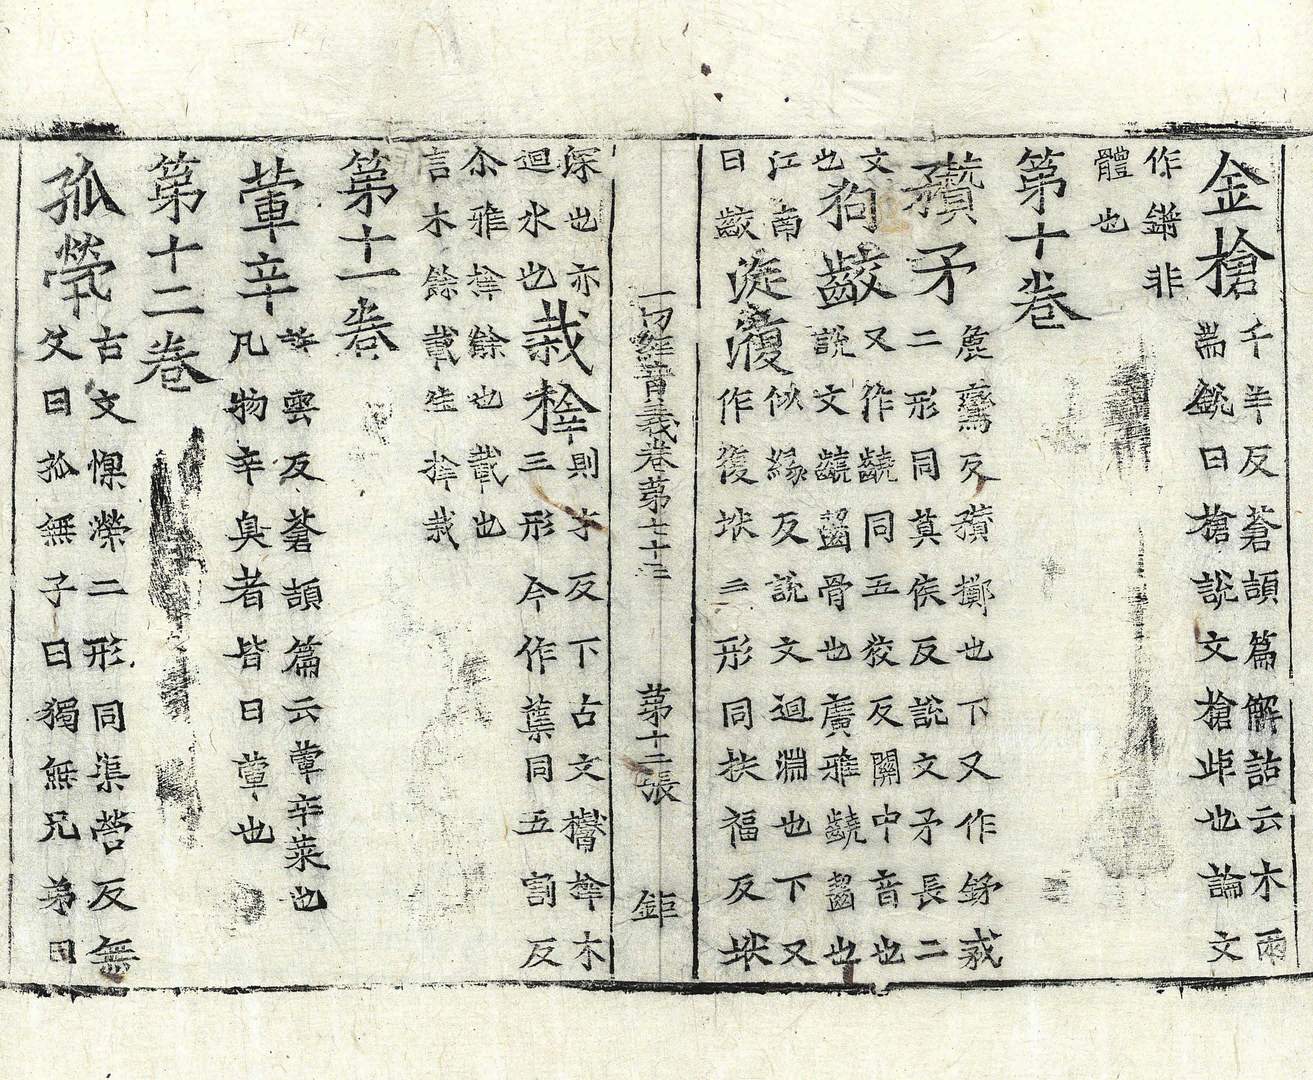 金槍
千羊反蒼頡篇解詁云木兩
耑銳曰槍說文槍歫也論文
作鏘非
體也
第十卷
矛
麁鸞反擲也下又作鉾𢦧
二形同莫侯反說文矛長二
文
也
狗齩
又作䶧同五狡反關中音也
說文䶧齧骨也廣雅䶧齧也
江南
曰齩
漩澓
似緣反說文迴淵也下又
作復垘二形同扶福反垘
一切經音義卷第七十三　第十二張　鉅
深也亦
迴水也
栽㭒
則才反下古文㭒木
三形今作蘖同五割反
尒雅㭒餘也載也
言木餘載生㭒栽
第十一卷
葷辛
許雲反蒼頡篇云葷辛菜也
凡物辛臭者皆曰葷也
第十二卷
孤煢
古文惸二形同渠營反無
父曰孤無子曰獨無兄弟曰